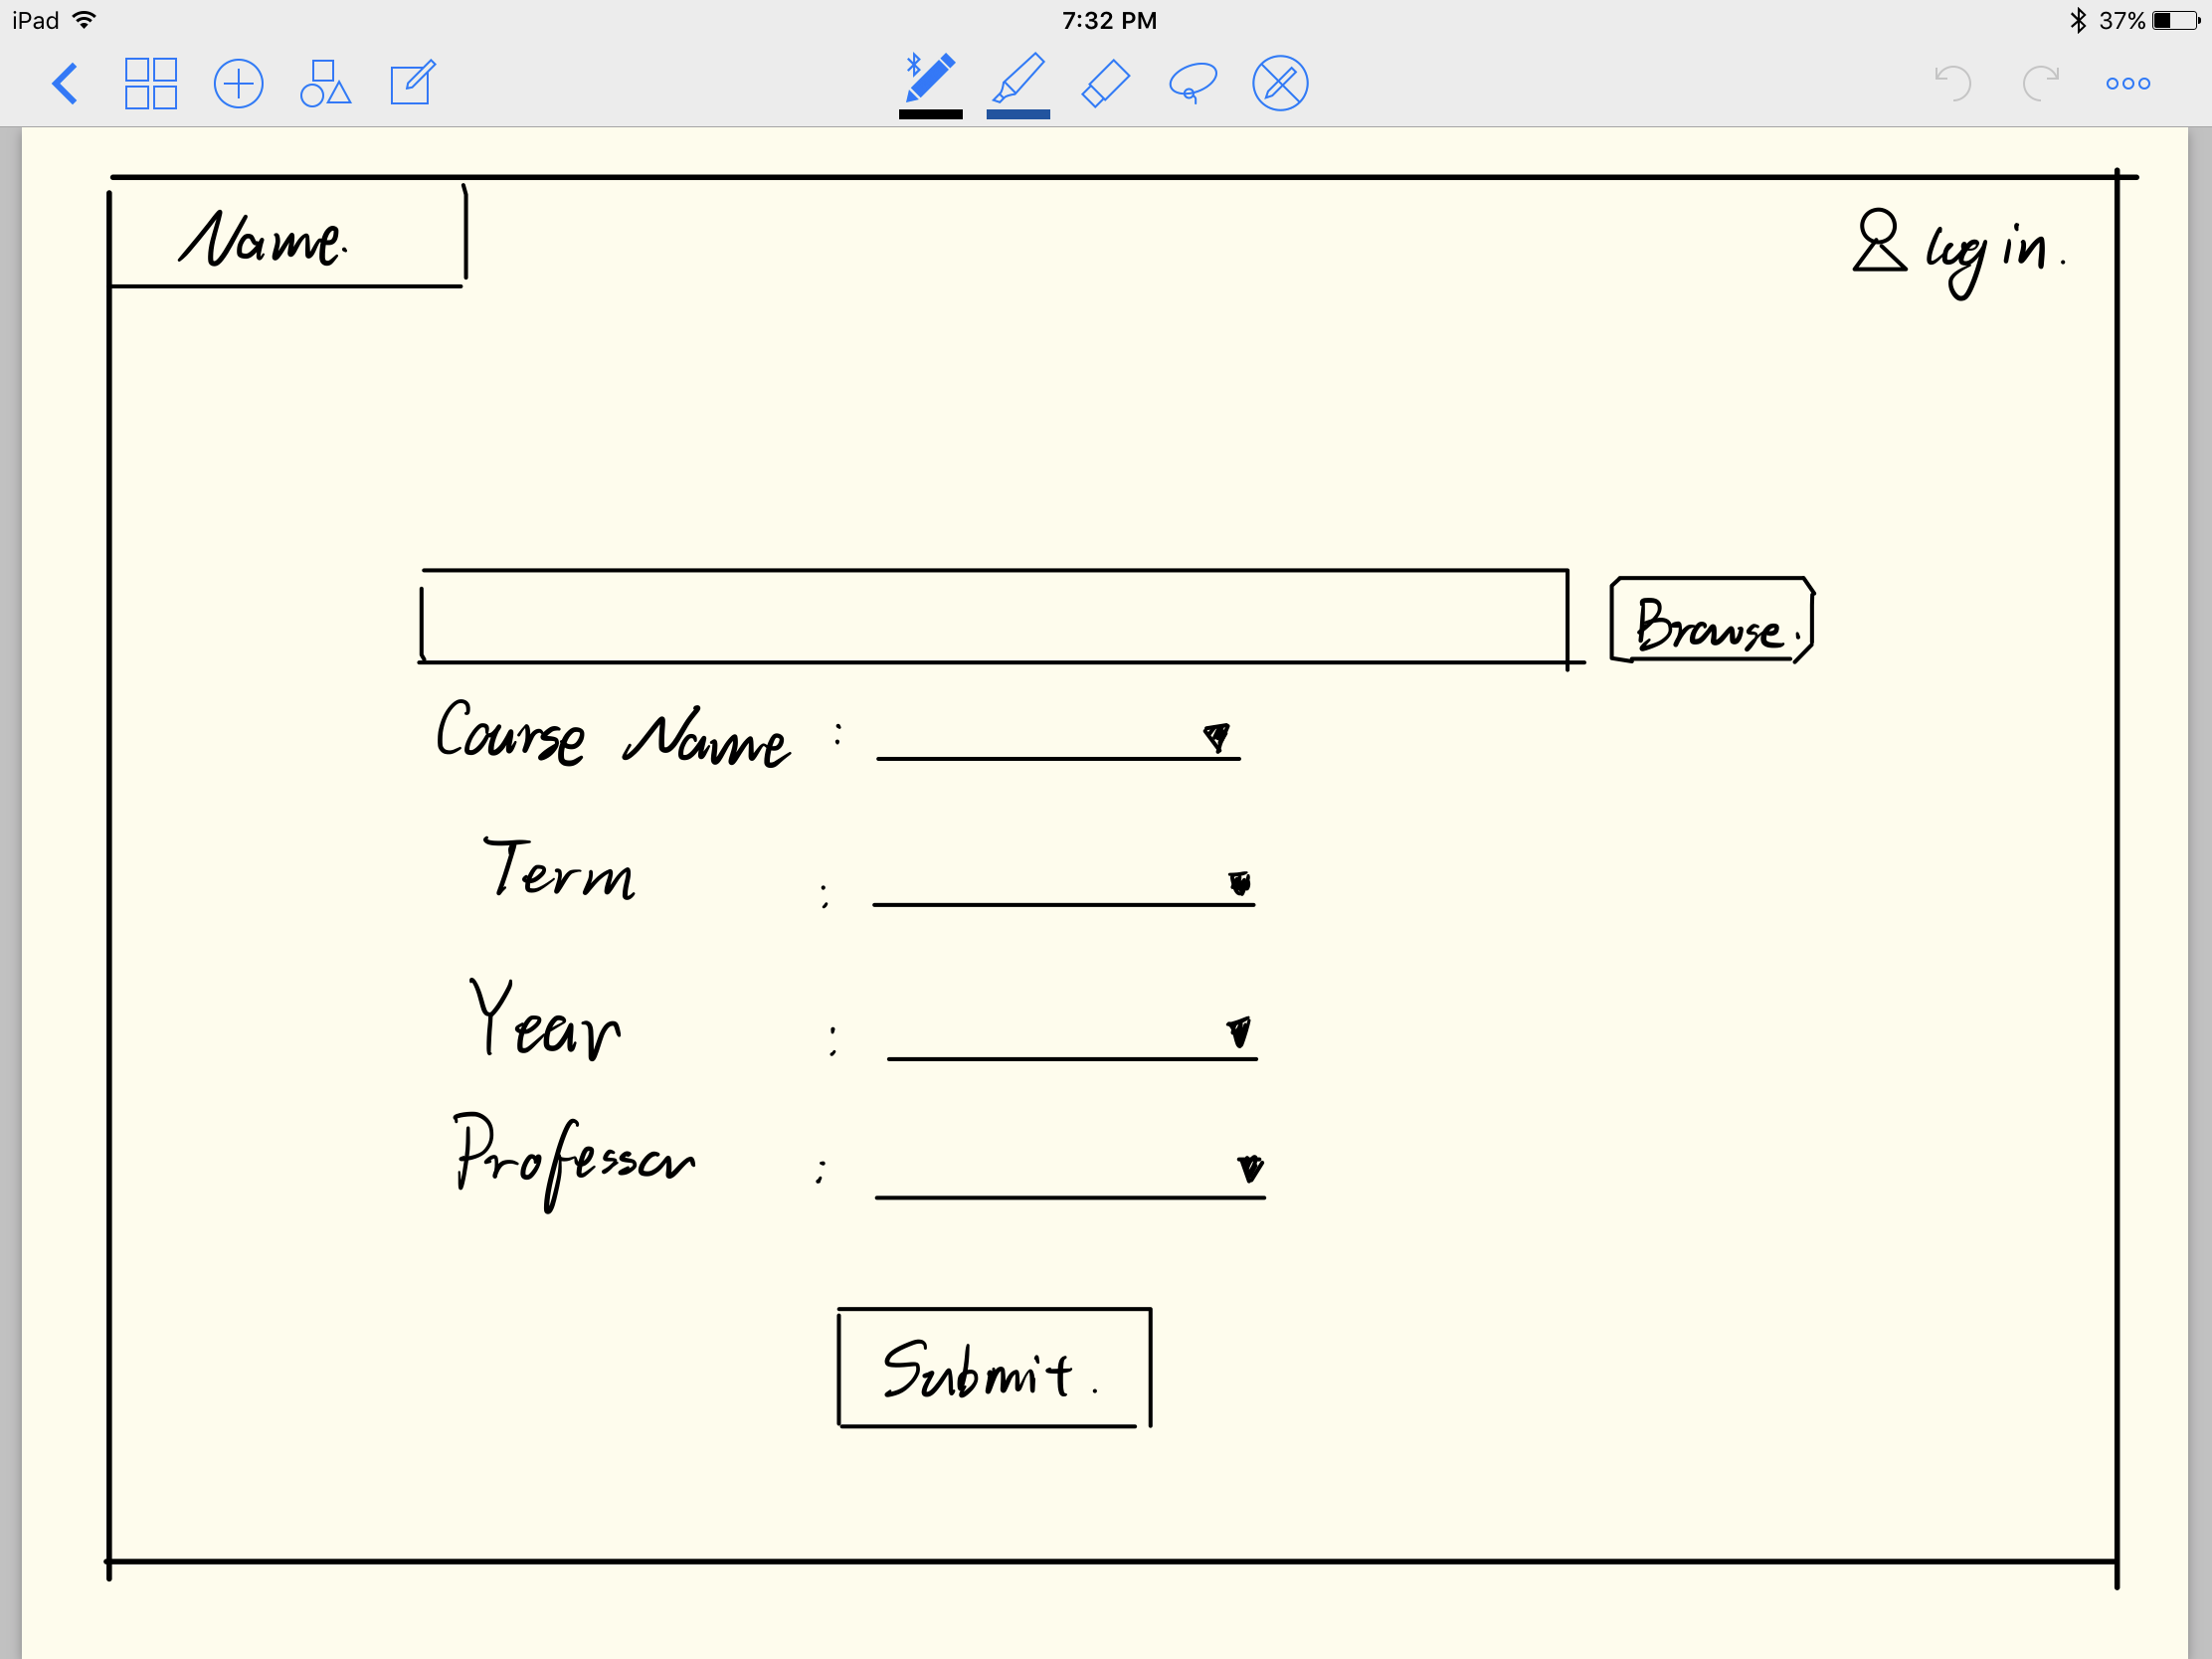 iPad 7:32 PM 37%
Name.
log in.
Browse.
Course Name :
Term :
Year :
Professor :
Submit.